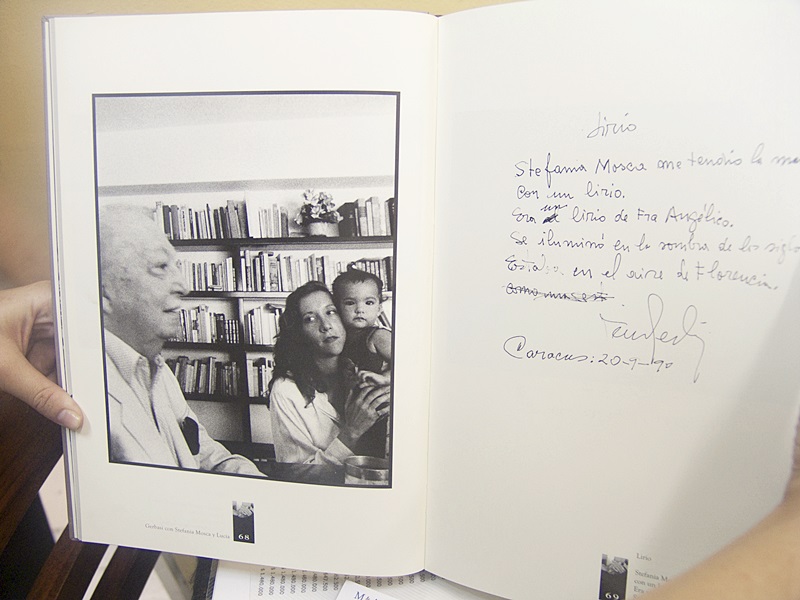 Gerbasi con Stefania Mosca y Lucía
68
Lirio
Stefania Mosca me tendió la
con un lirio.
Era un lirio de Fra Angélico.
Se iluminó en la sombra de los siglos
Estaba en el aire de Florencia.
Caracas: 20-9-90
69
Lirio
Stefania
con un
Era